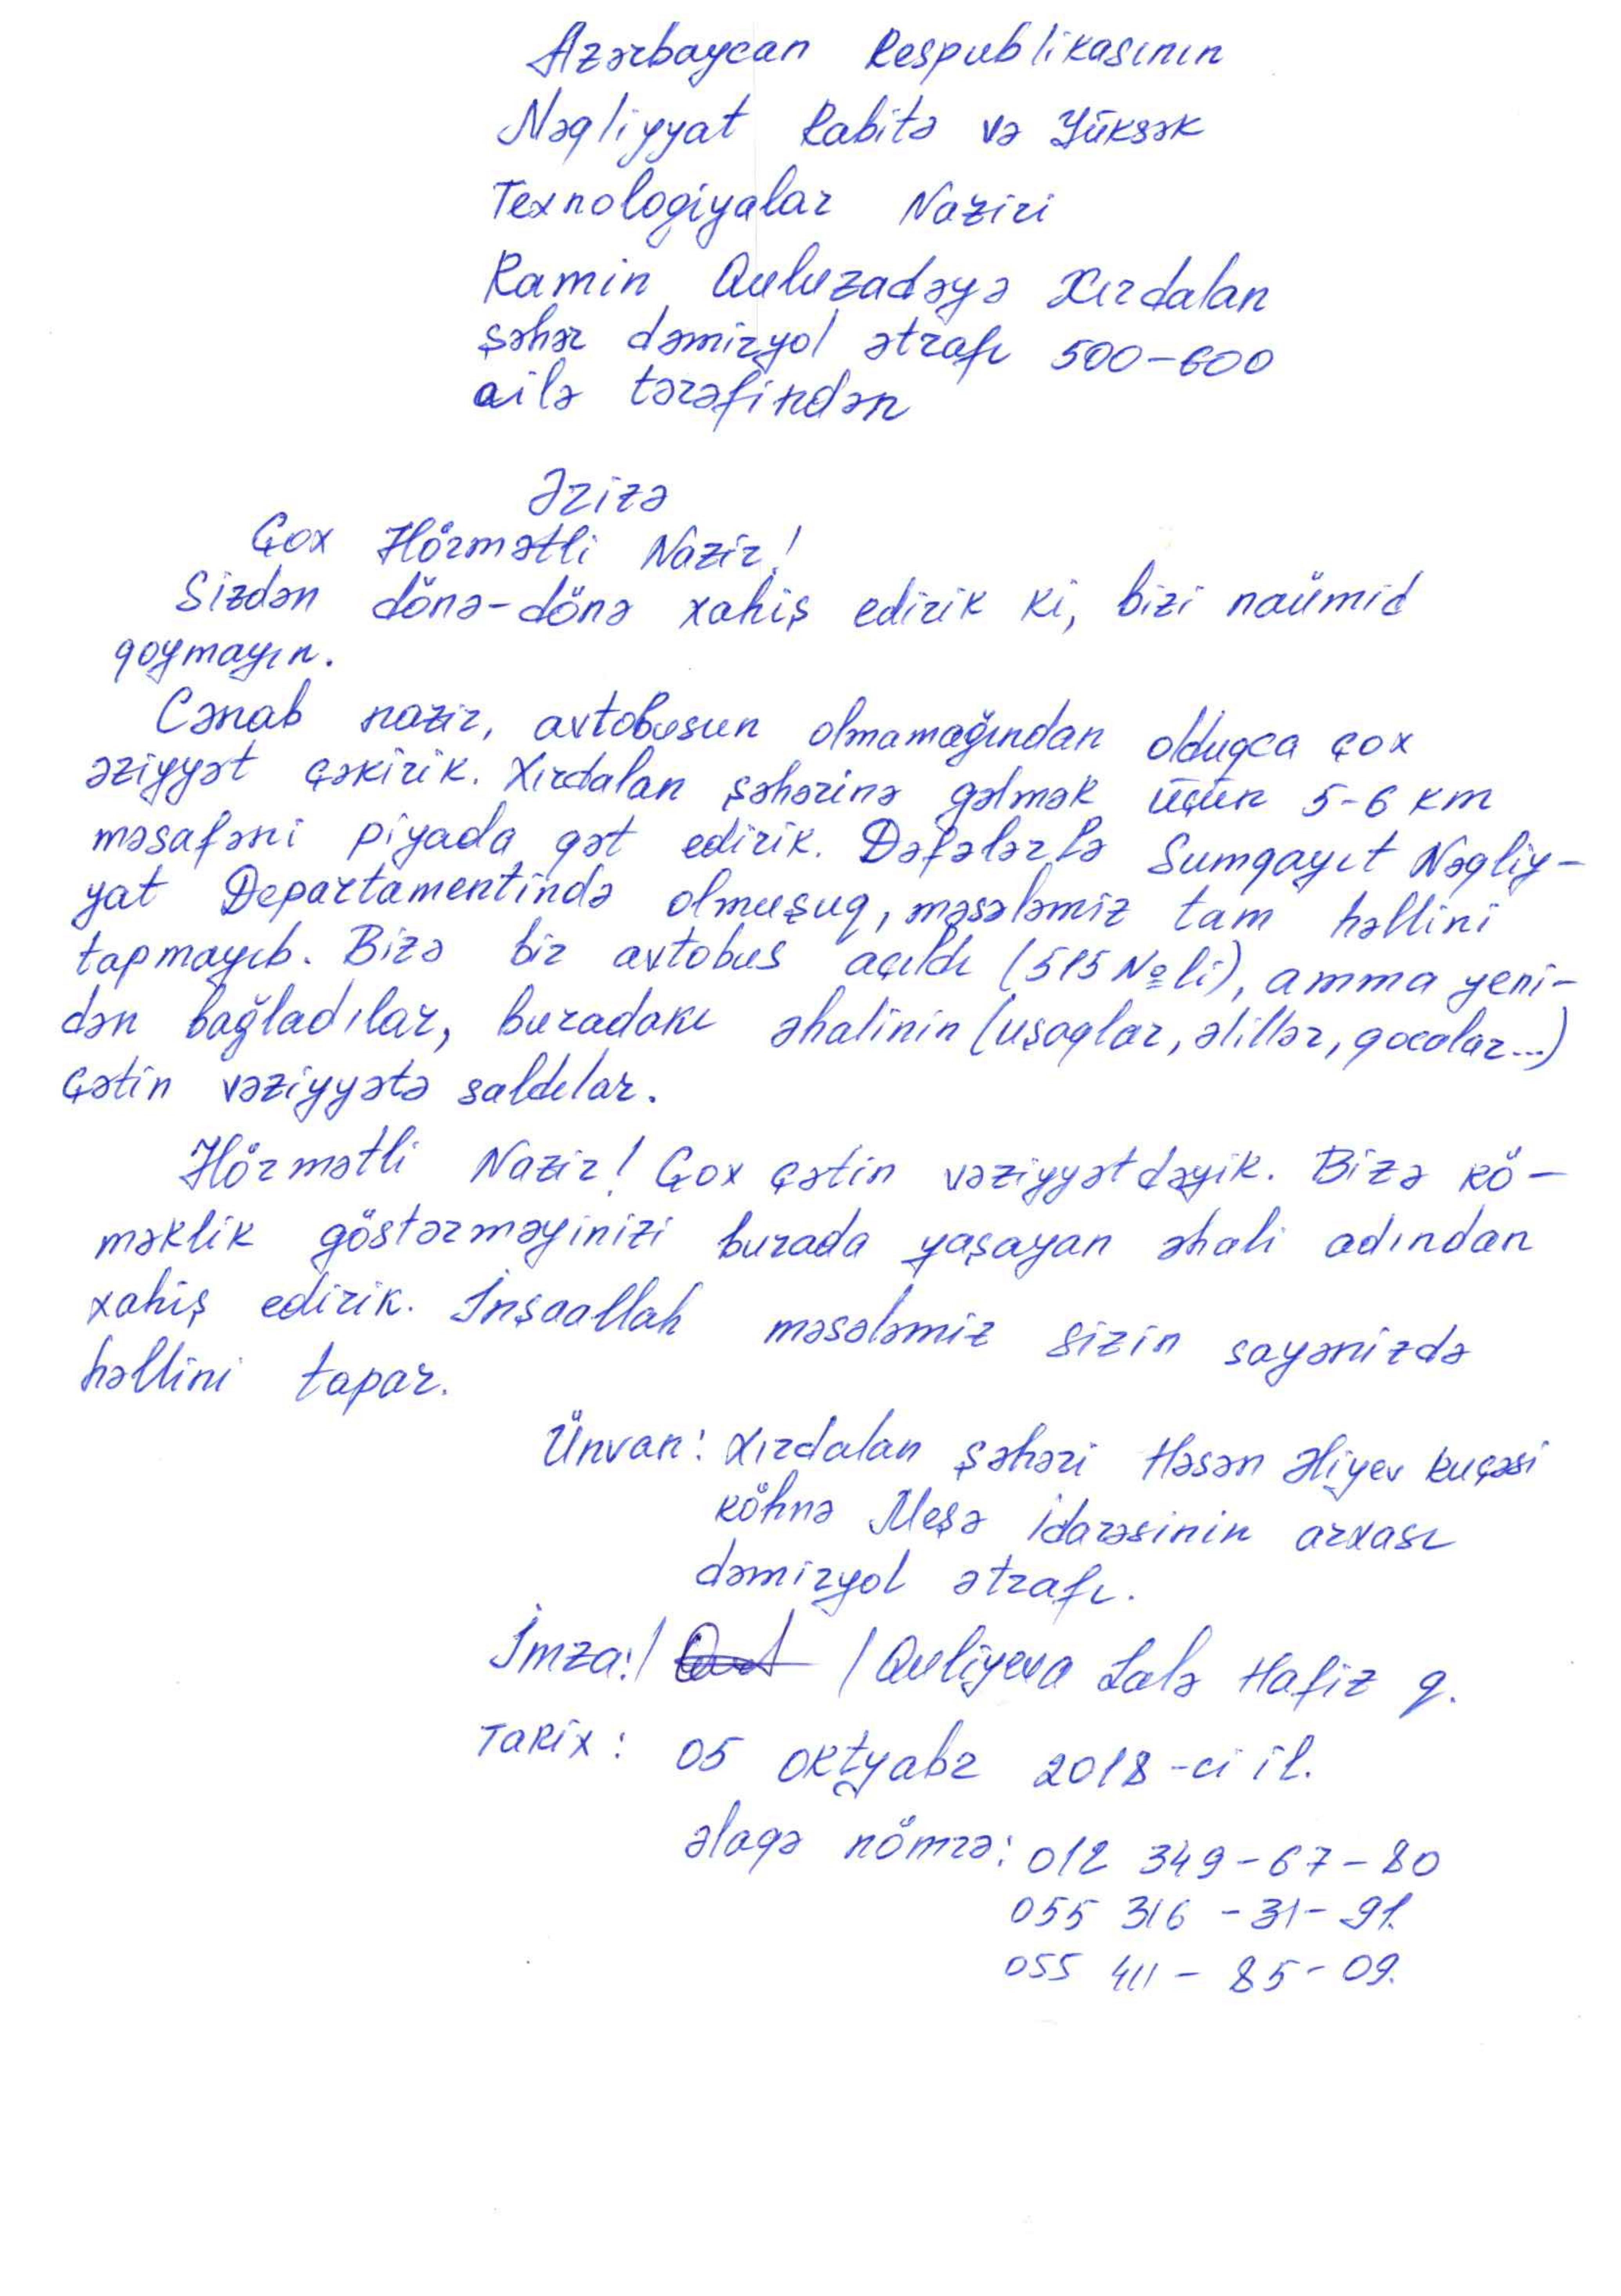 Azərbaycan Respublikasının
Nəqliyyat Rabitə və Yüksək
Texnologiyalar Naziri
Ramin Quluzadəyə Xırdalan
şəhər dəmiryol ətrafı 500-600
ailə tərəfindən
Ərizə
Çox Hörmətli Nazir!
Sizdən dönə-dönə xahiş edirik ki, bizi naümid
qoymayın.
Cənab nazir, avtobusun olmamağından olduqca çox
əziyyət çəkirik. Xırdalan şəhərinə gəlmək üçün 5-6 km
məsafəni piyada qət edirik. Dəfələrlə Sumqayıt Nəqliy-
yat Departamentində olmuşuq, məsələmiz tam həllini
tapmayıb. Bizə bir avtobus açıldı (515 №li), amma yeni-
dən bağladılar, buradakı əhalinin (uşaqlar, əlillər, qocalar...)
çətin vəziyyətə saldılar.
Hörmətli Nazir! Çox çətin vəziyyətdəyik. Bizə kö-
məklik göstərməyinizi burada yaşayan əhali adından
xahiş edirik. İnşaallah məsələmiz sizin sayənizdə
həllini tapar.
Ünvan: Xırdalan şəhəri Həsən Əliyev kuçəsi
köhnə Meşə idarəsinin arxası
dəmiryol ətrafı.
İmza:/ / Quliyeva Lalə Hafiz q.
Tarix: 05 oktyabr 2018-ci il.
əlaqə nömrə: 012 349-67-80
055 316-31-91.
055 411-85-09.